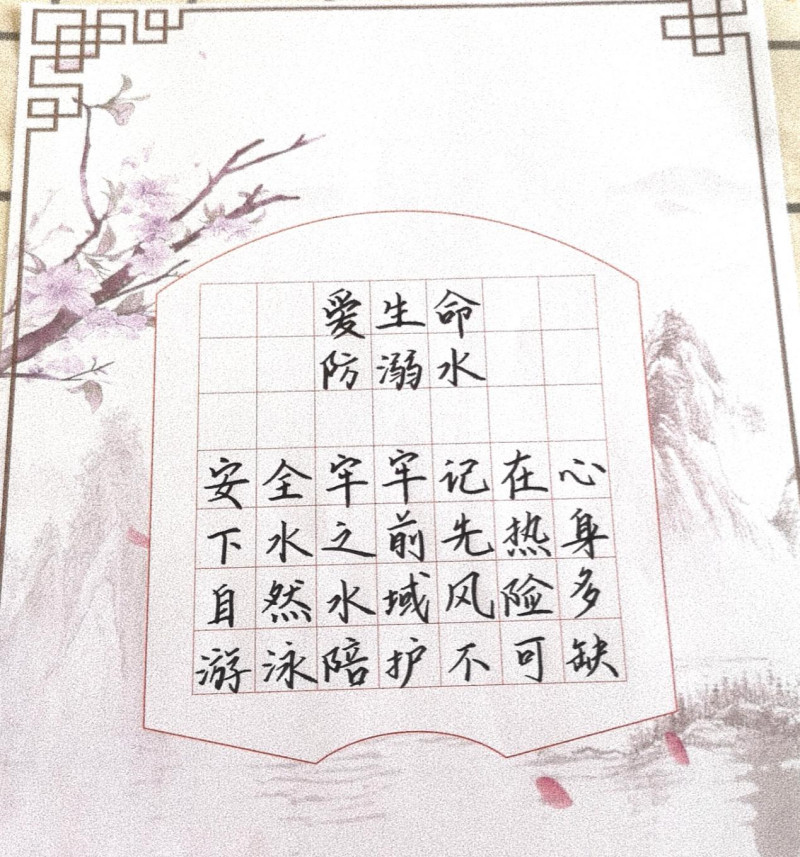 爱生命
防溺水
安全牢牢记在心
下水之前先热身
自然水域风险多
游泳陪护不可缺